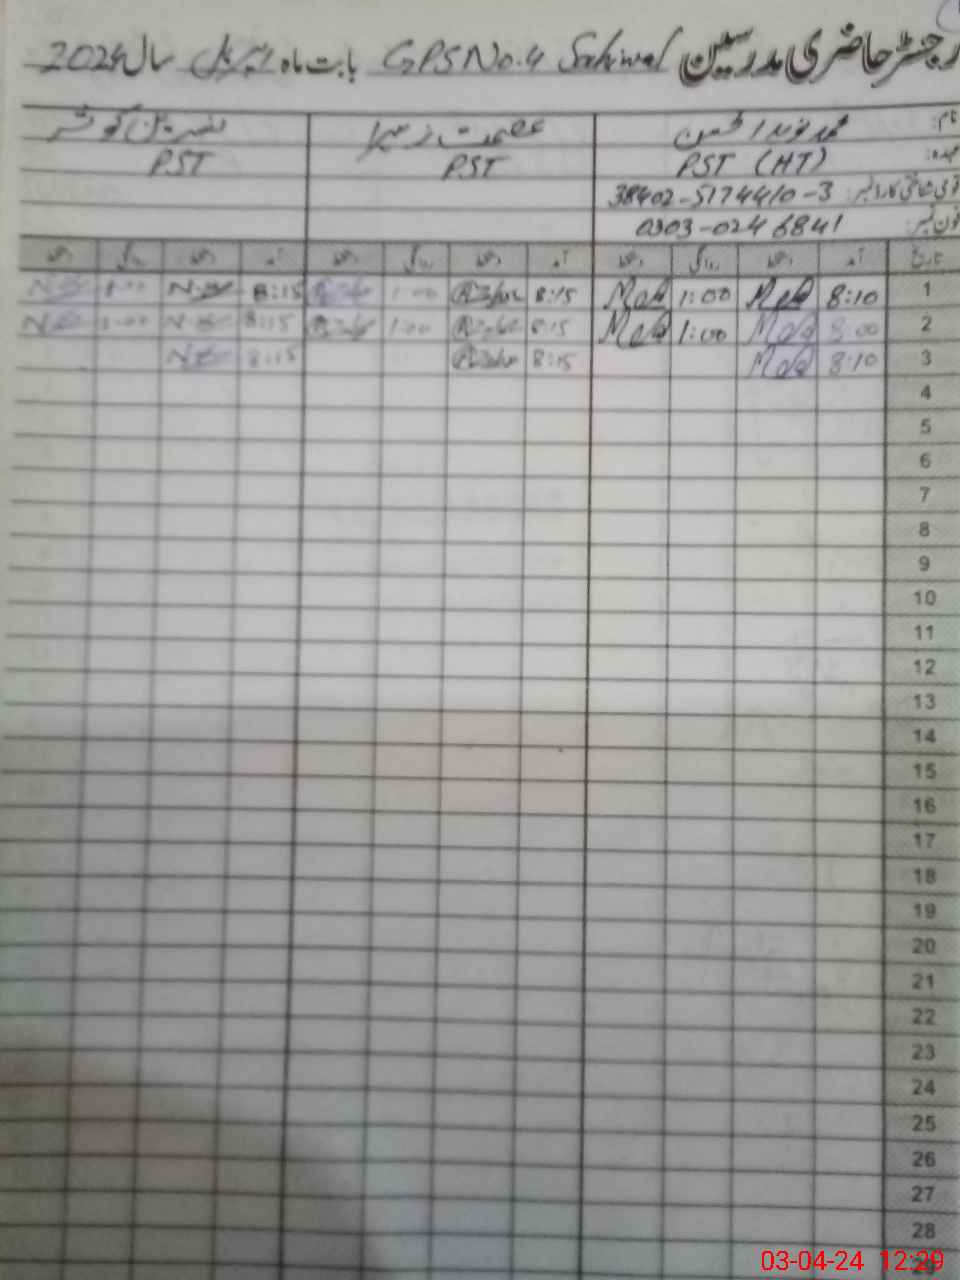 رجسٹر حاضری مدرسین GPS No.4 Sahiwal بابت ماہ اپریل سال 2024
نام: محمد نوید الحسن عصمت زہرا نسرین کوثر
عہدہ: PST (HT) PST PST
قومی شناختی کارڈ نمبر: 38402-5174410-3
فون نمبر: 0303-0246841
تاریخ آمد دستخط روانگی دستخط آمد دستخط روانگی دستخط آمد دستخط روانگی دستخط
1 8:10 1:00 8:15 1:00 8:15 1:00
2 8:00 1:00 8:15 1:00 8:15 1:00
3 8:10 8:15 8:15
4
5
6
7
8
9
10
11
12
13
14
15
16
17
18
19
20
21
22
23
24
25
26
27
28
29
03-04-24 12:29